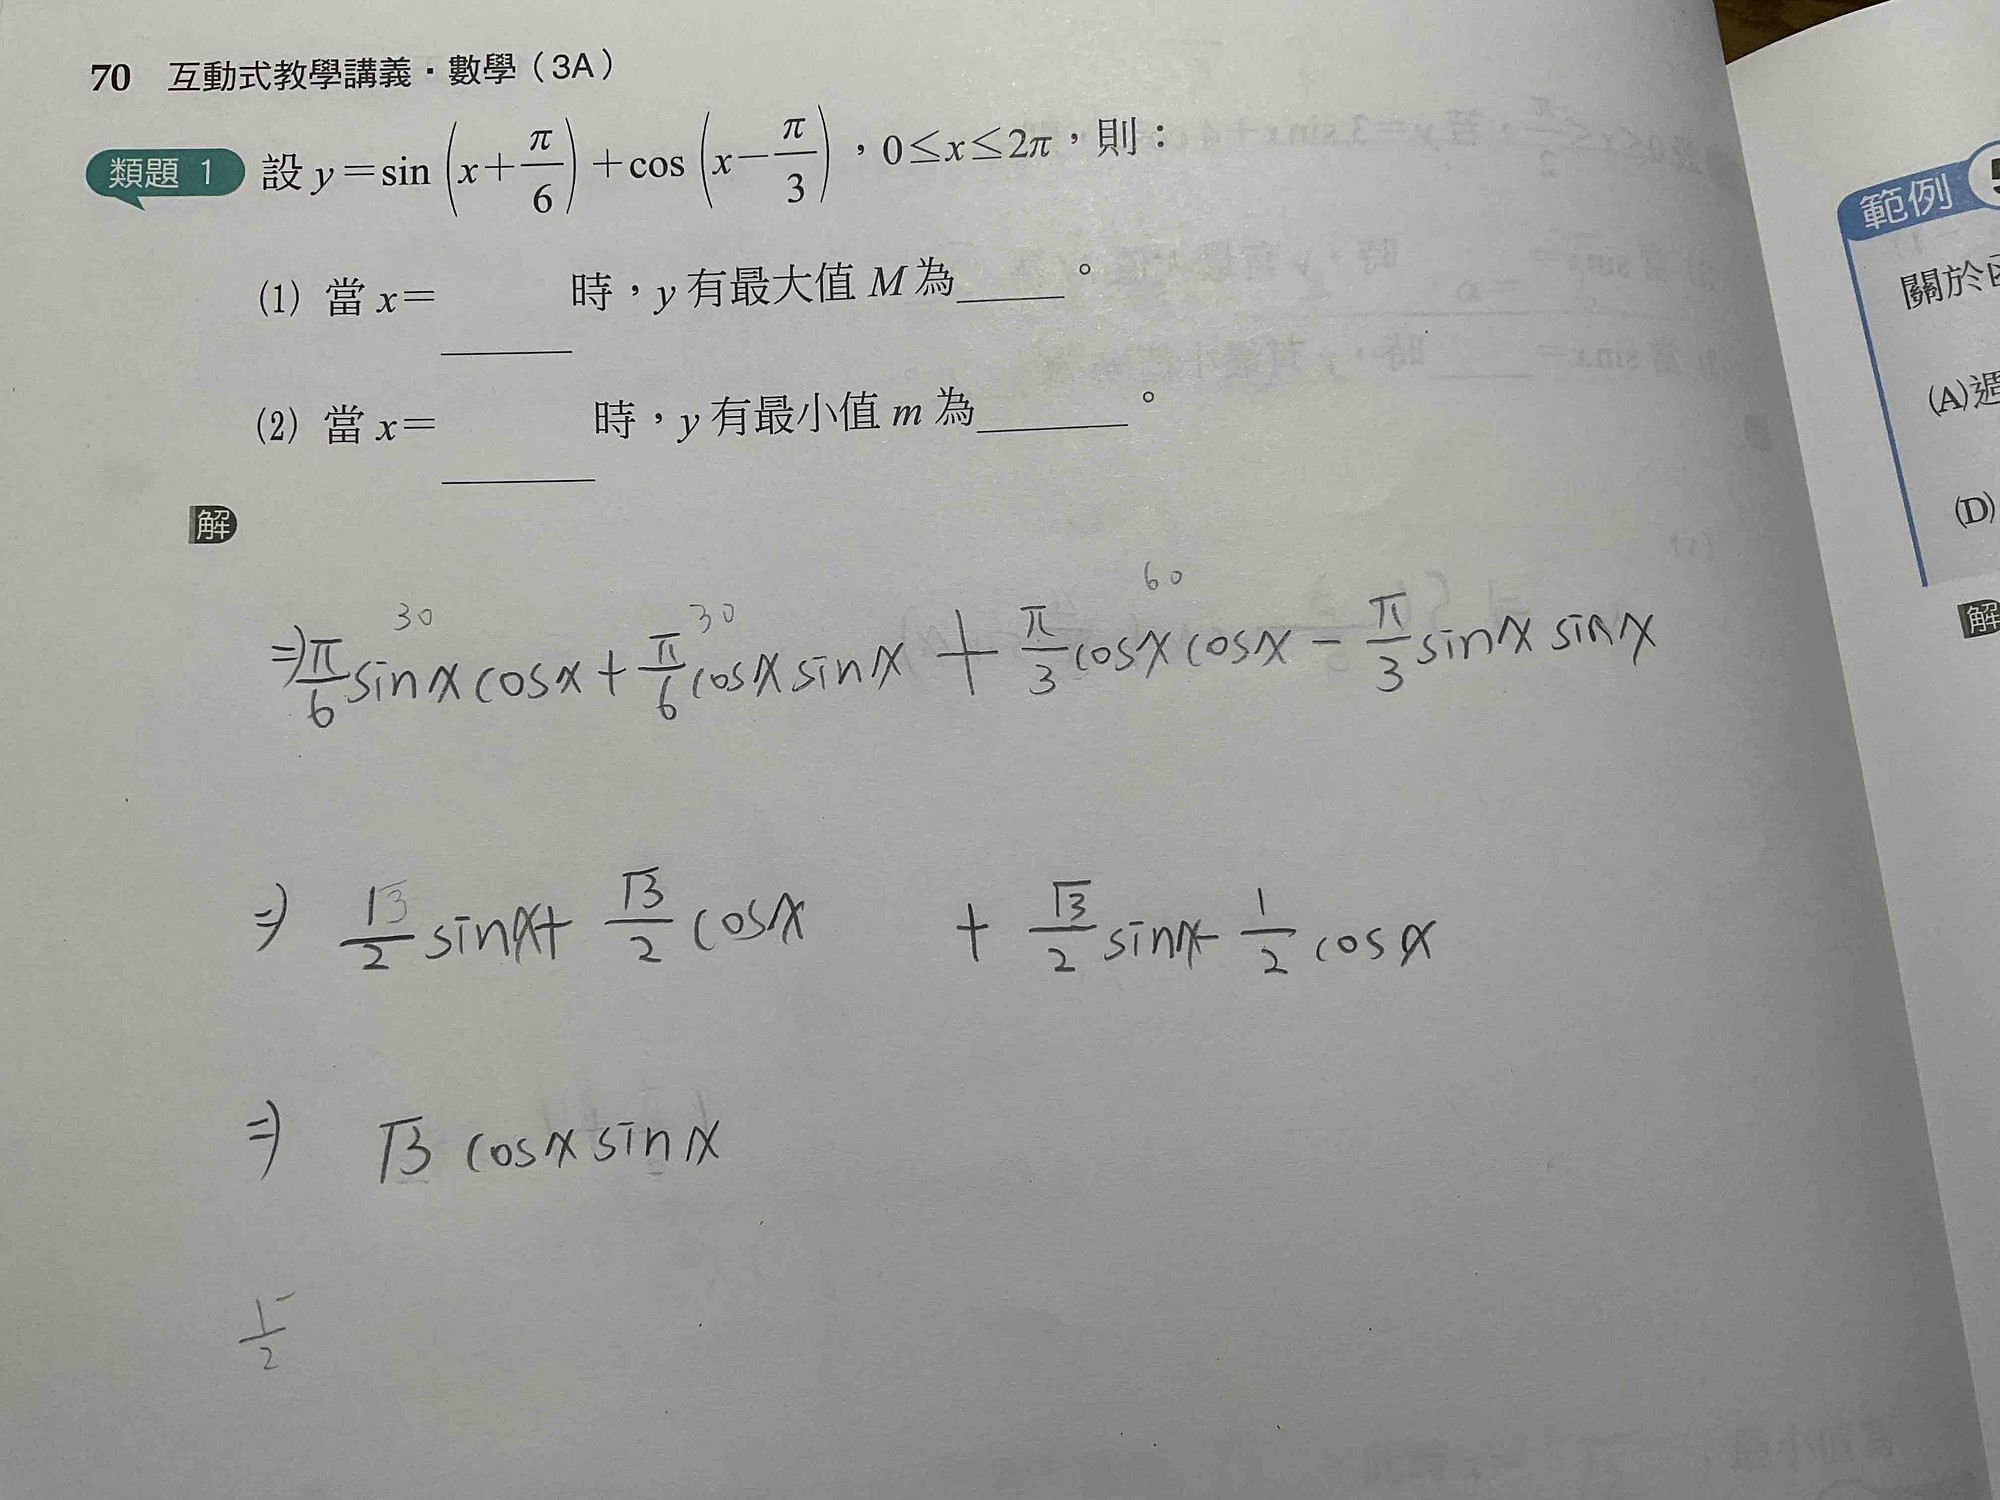 70 互動式教學講義·數學（3A）
類題 1 設 y＝sin (x＋π/6)＋cos (x－π/3)，0≤x≤2π，則：
(1) 當 x＝____時，y 有最大值 M 為____。
(2) 當 x＝____時，y 有最小值 m 為____。
解
30 30 60
⇒ π/6 sinx cosx + π/6 cosx sinx + π/3 cosx cosx − π/3 sinx sinx
⇒ √3/2 sinx + √3/2 cosx + √3/2 sinx − 1/2 cosx
⇒ √3 cosx sinx
1/2
範例
關於
(A)週
(D)
解